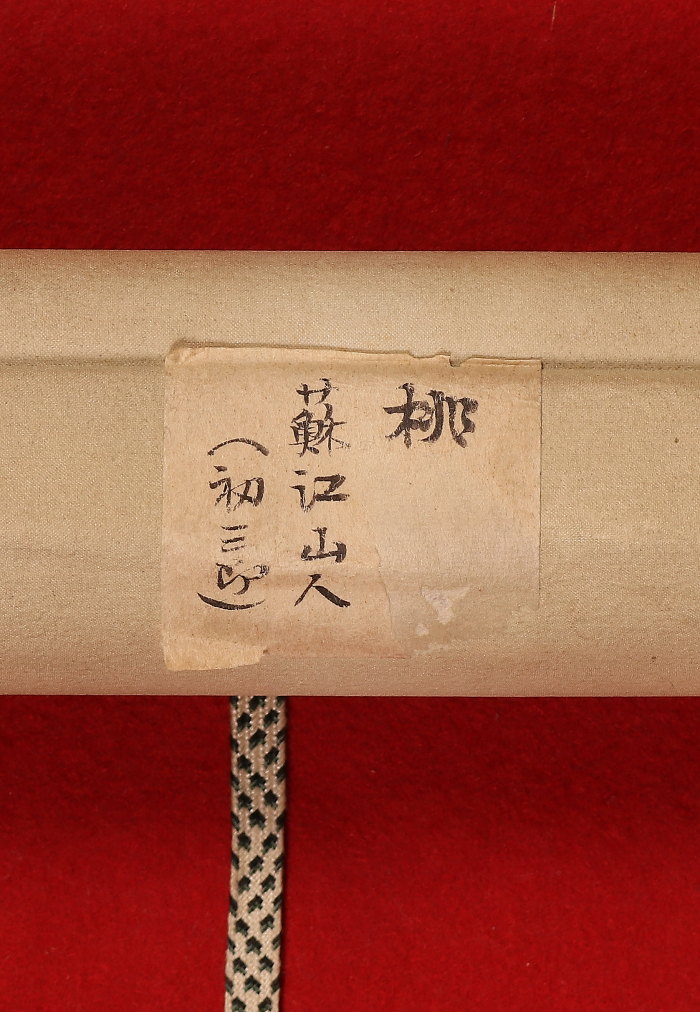 桃
蘇江山人
（初三郎）